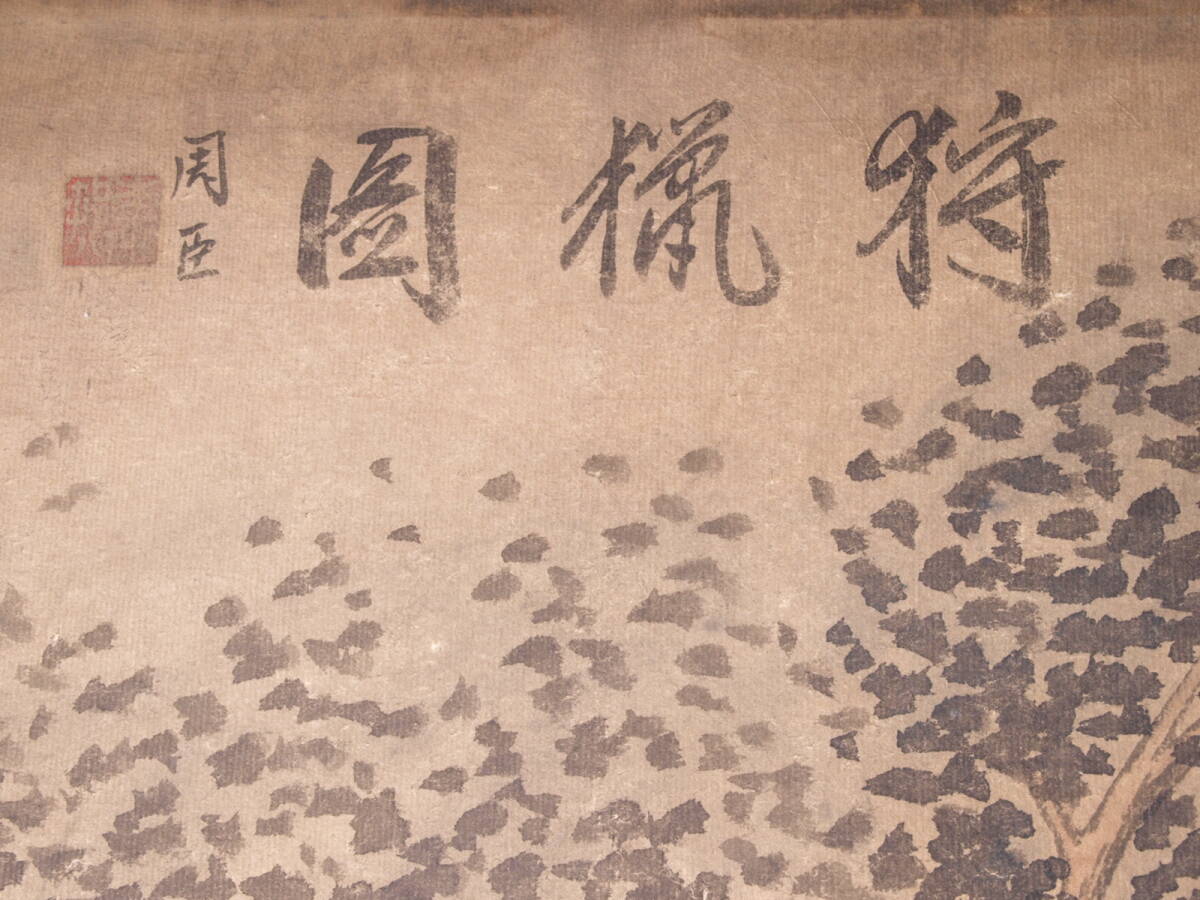 狩獵圖
周臣